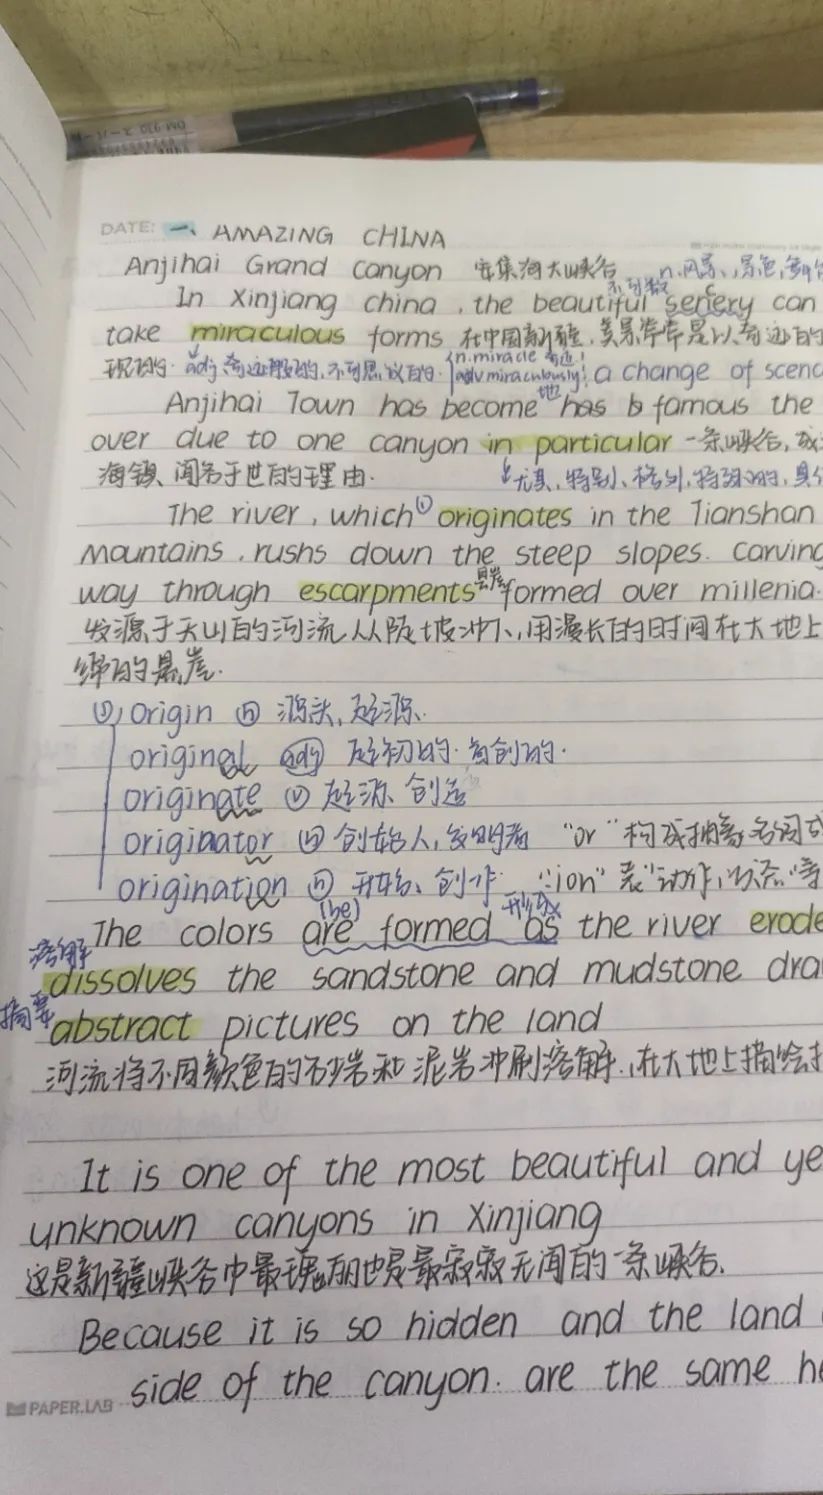 DATE: 一、 AMAZING CHINA
Anjihai Grand Canyon 安集海大峡谷 n.风景、景色,
不可数 c
In Xinjiang china , the beautiful senery can
take miraculous forms 在中国新疆,美景常常是以奇迹的
现的. adj.奇迹般的、不可思议的. n.miracle 奇迹! adv miraculously! a change of scene
地
Anjihai Town has become has b famous the
over due to one canyon in particular 一条峡谷,
海镇 闻名于世的理由. 尤其,特别、格外,特强的,具
The river , which ① originates in the Tianshan
Mountains . rushs down the steep slopes. carving
way through escarpments 悬崖 formed over millenia.
发源于天山的河流从陡坡冲下,用漫长的时间在大地上
绵的悬崖.
①, origin ⓝ 源头、起源.
original adj 起初的.首创的.
originate ⓥ 起源、创造
originator ⓝ 创始人,发明者 "or"构成抽象名词或
origination ⓝ 开始、创作. "ion"表"动作,状态"等
(be) 形成
The colors are formed as the river erode
溶解
dissolves the sandstone and mudstone dra
摘要 abstract pictures on the land
河流将不同颜色的砂岩和泥岩冲刷溶解.,在大地上描绘
It is one of the most beautiful and ye
unknown canyons in Xinjiang
这是新疆峡谷中最瑰丽也是最寂寂无闻的一条峡谷.
Because it is so hidden and the land
side of the canyon. are the same he
PAPER.LAB